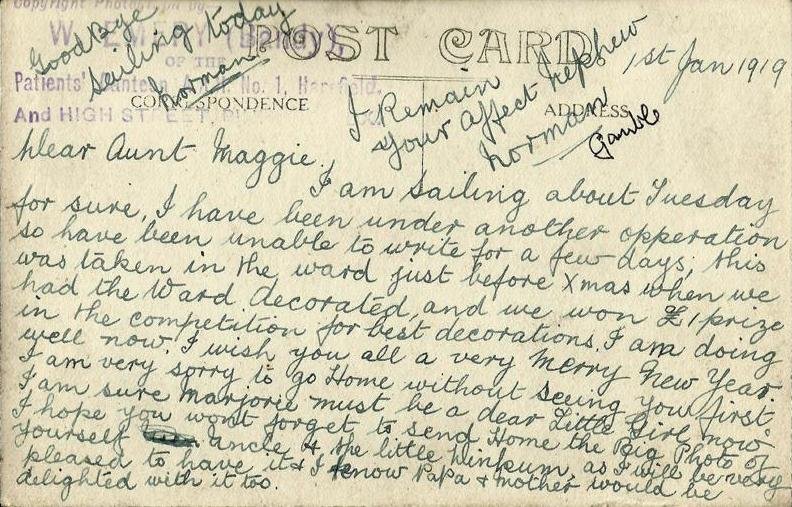 Copyright Photograph by
W. EMERY (Bendy),
OF THE
Patients' Canteen, No. 1, Harefield.
And HIGH STREET,
POST CARD.
CORRESPONDENCE
ADDRESS
Good Bye
Sailing today
Norman.
1st Jan 1919
I Remain
Your affect Nephew
Norman
Gamble
Dear Aunt Maggie,
I am sailing about Tuesday
for sure, I have been under another opperation
so have been unable to write for a few days, this
was taken in the ward just before Xmas when we
had the Ward decorated, and we won £1 prize
in the competition for best decorations. I am doing
well now. I wish you all a very Merry New Year.
I am very sorry to go Home without seeing you first.
I am sure Marjorie must be a dear Little Girl now
I hope you wont forget to send Home the Big Photo of
yourself uncle & the little Winkum, as I will be very
pleased to have it & I know Papa & Mother would be
delighted with it too.